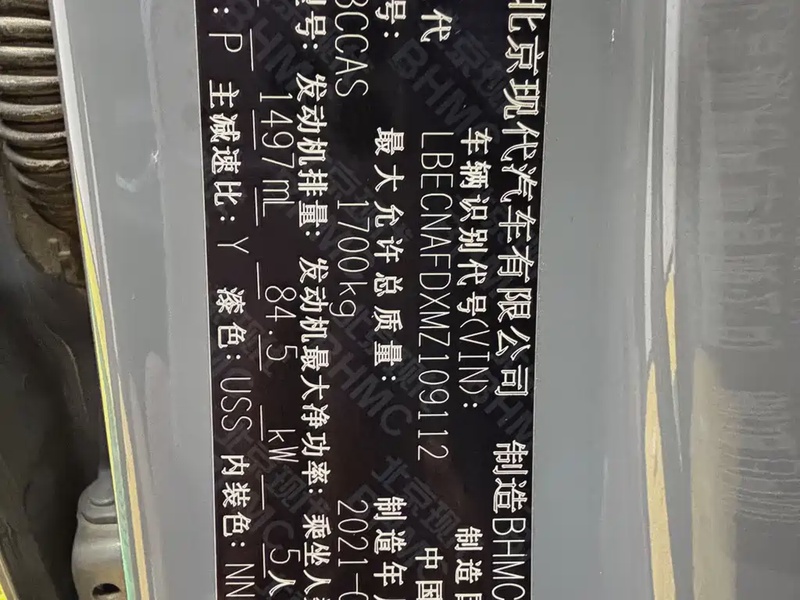 北京现代汽车有限公司 制造BHMC
代 车辆识别代号(VIN): 制造
LBECNAFDXMZ109112 中国
号: 最大允许总质量: 制造年
BCCAS 1700kg 2021-0
型号: 发动机排量: 发动机最大净功率: 乘坐人
1497mL 84.5 kW 5人
: P 主减速比: Y 漆色: USS 内装色: NN